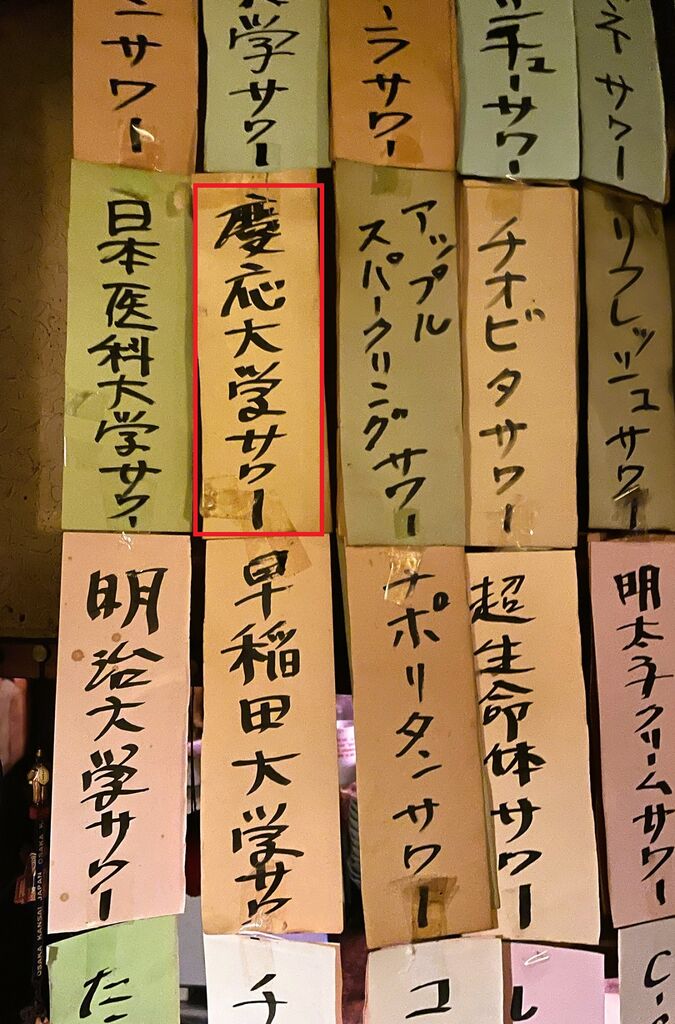 ネサワー
チューサワー
ーラサワー
学サワー
ンサワー
リフレッシュサワー
チオビタサワー
アップル
スパークリングサワー
慶応大学サワー
日本医科大学サワー
明太子クリームサワー
超生命体サワー
ナポリタンサワー
早稲田大学サワー
明治大学サワー
コ
チ
た
OSAKA KANSAI JAPAN OSAKA K